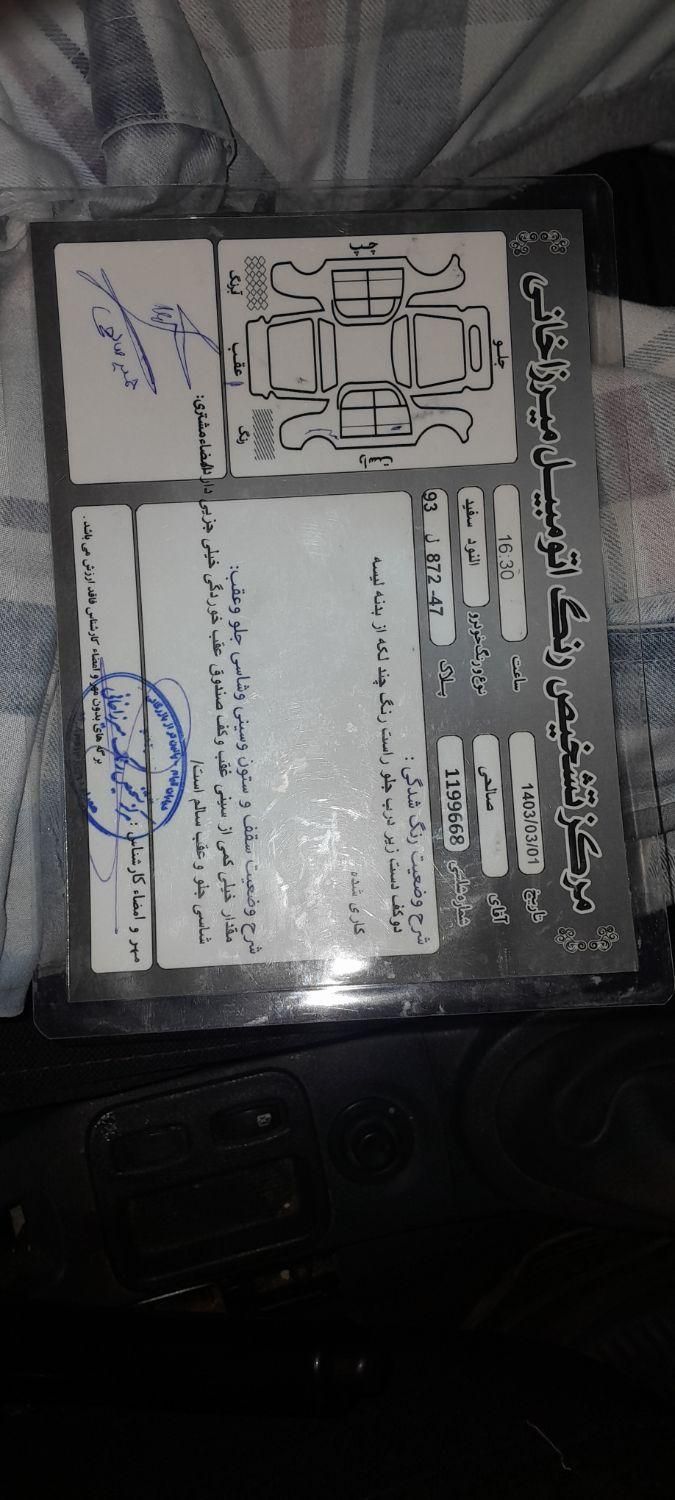 مرکز تشخیص رنگ اتومبیل میرزاخانی
تاریخ 1403/03/01 ساعت 16:30
آقای صالحی نوع ورنگ خودرو النود سفید
شماره شاسی 1199668 پلاک 93 ل 872-47
شرح وضعیت رنگ شدگی :
دوکف دست زیر درب جلو راست رنگ چند لکه از بدنه لیسه
کاری شده
شرح وضعیت سقف و ستون وسینی وشاسی جلو وعقب:
مقدار خیلی کمی از سینی عقب وکف صندوق عقب خوردگی خیلی جزیی دارد
شاسی جلو و عقب سالم است/
مهر و امضاء کارشناس :
برگه های بدون مهر و امضاء کارشناس فاقد ارزش می باشد.
جلو
عقب
چپ
رنگ
امضاء مشتری: